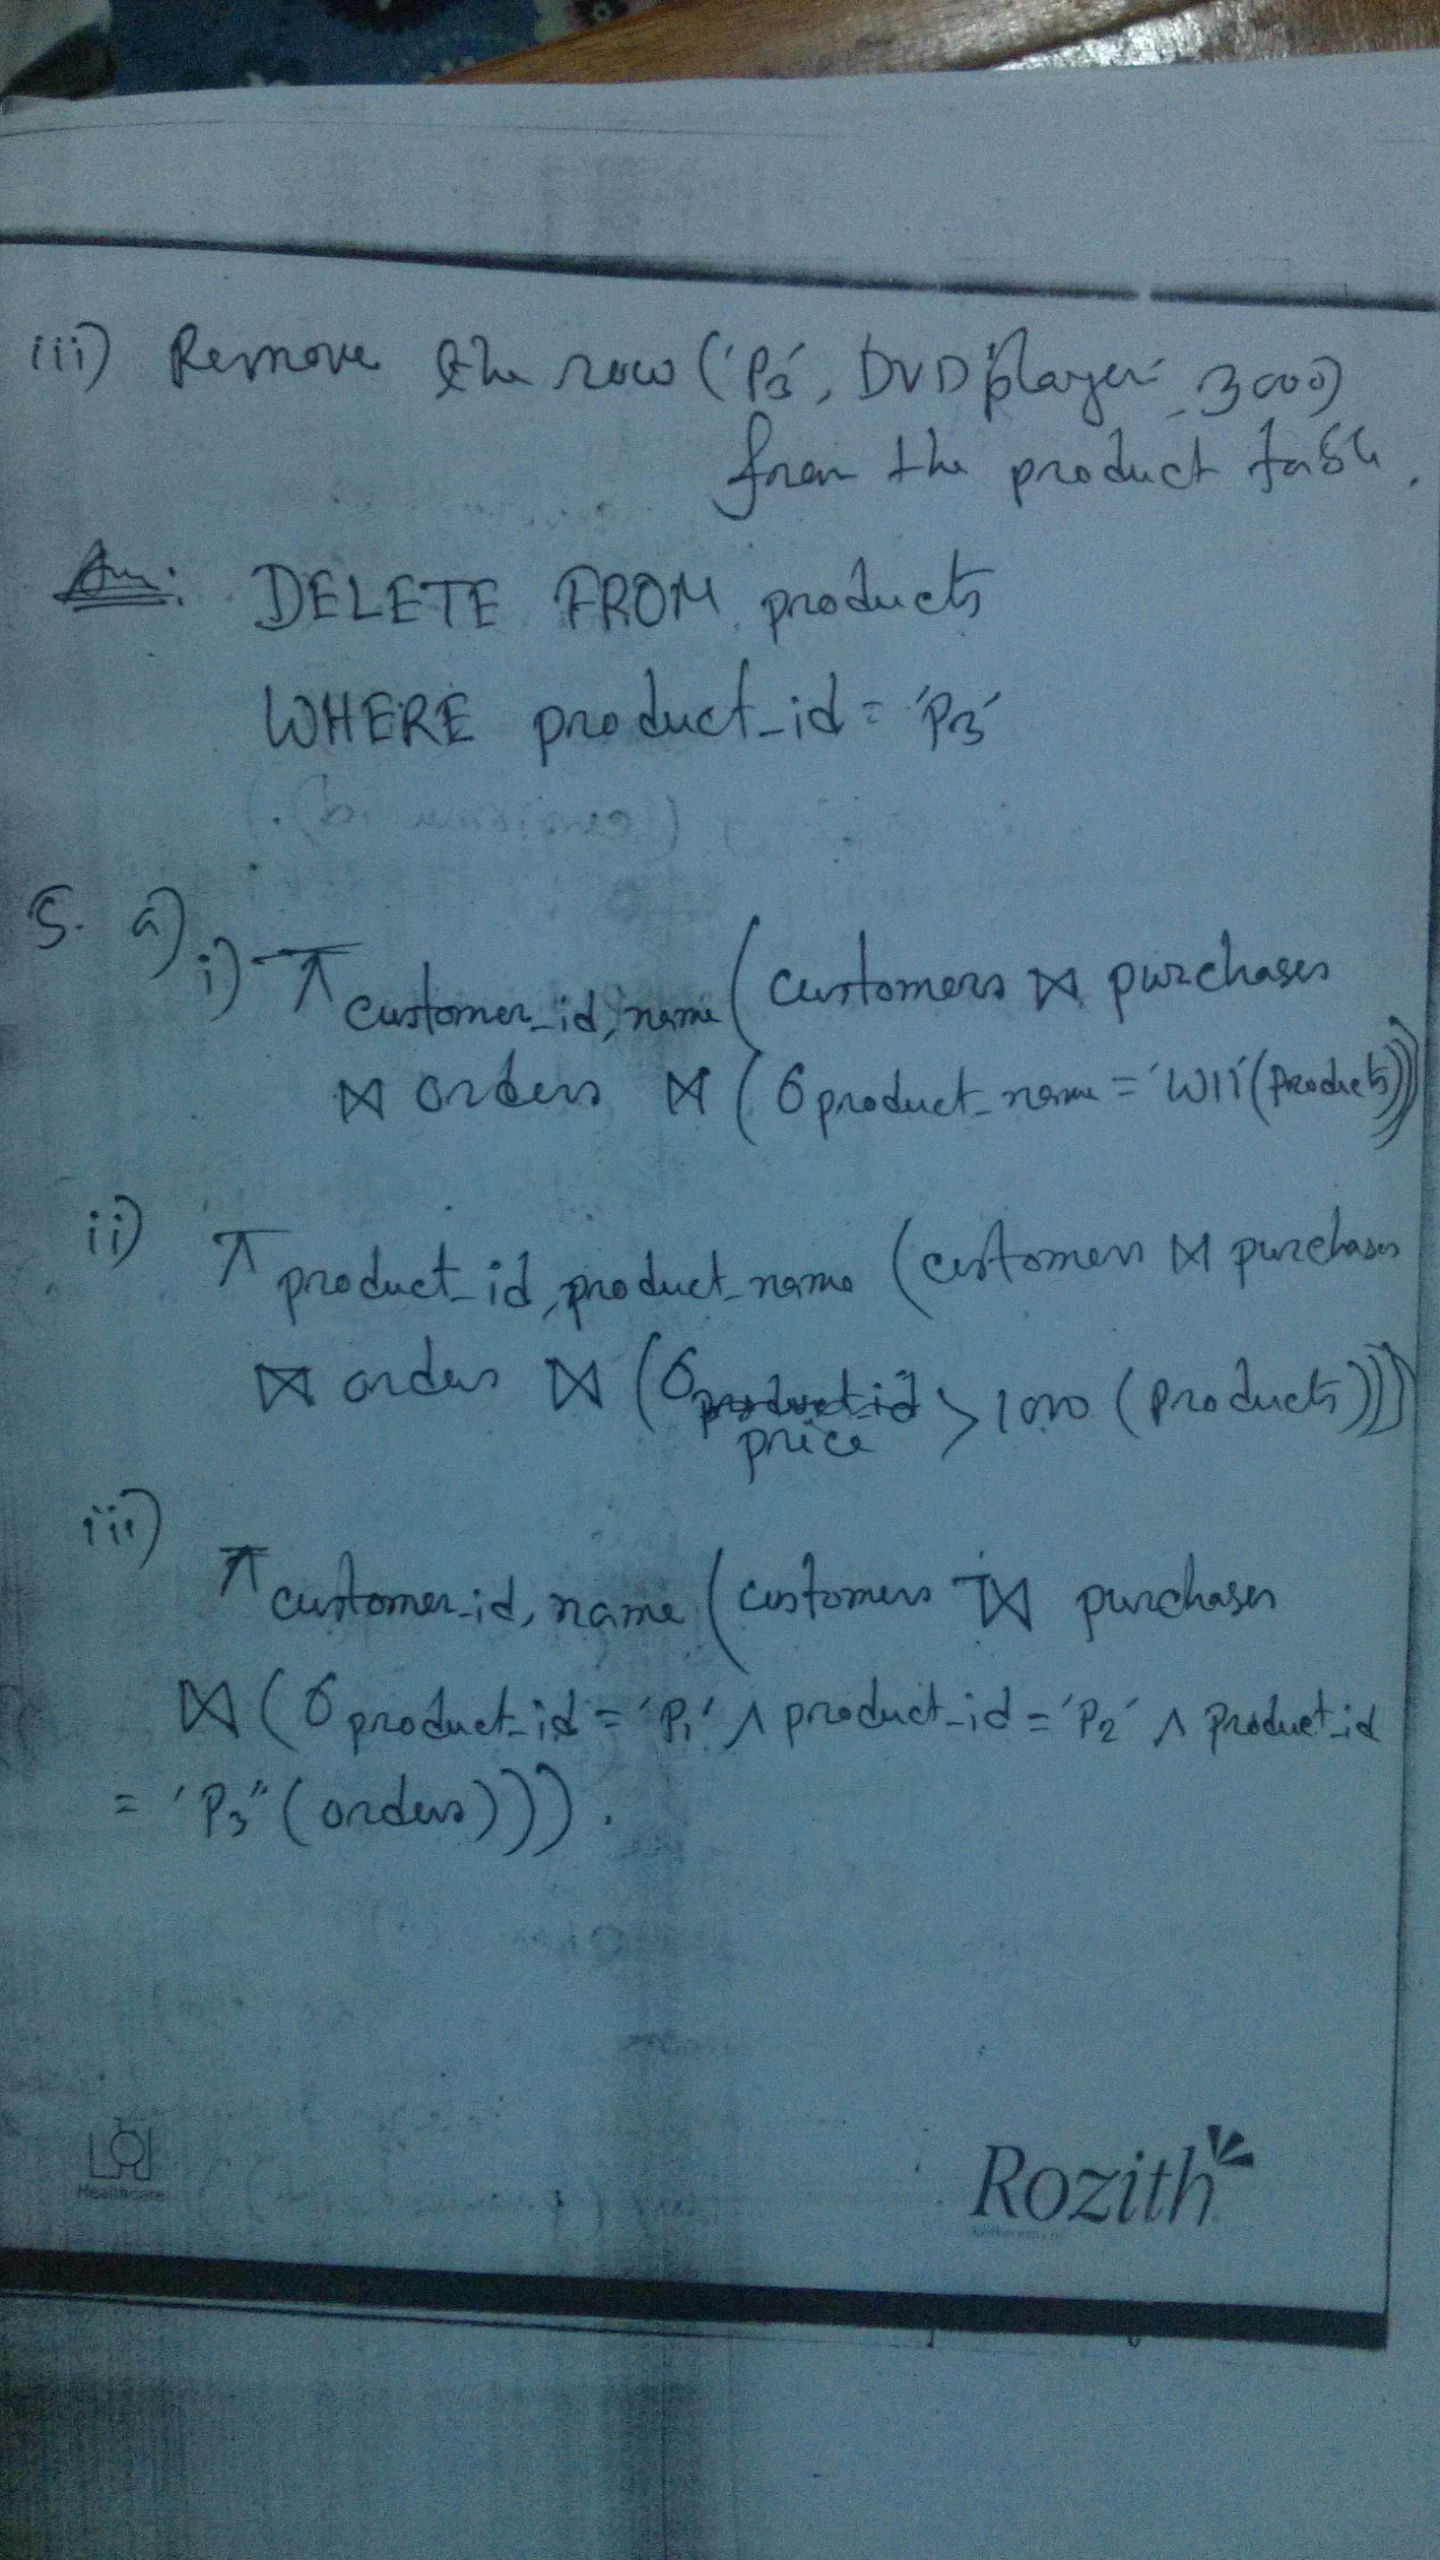 iii) Remove the row ('P3', DVD player, 3000)
from the product table.
Ans: DELETE FROM products
WHERE product_id = 'P3'
5. a) i) π customer_id, name (customers ⋈ purchases
⋈ orders ⋈ (σ product_name = 'WII' (products)))
ii) π product_id, product_name (customers ⋈ purchases
⋈ orders ⋈ (σ price > 1000 (products)))
iii) π customer_id, name (customers ⋈ purchases
⋈ (σ product_id = 'P1' ∧ product_id = 'P2' ∧ product_id
= 'P3" (orders))).
Healthcare
Rozith